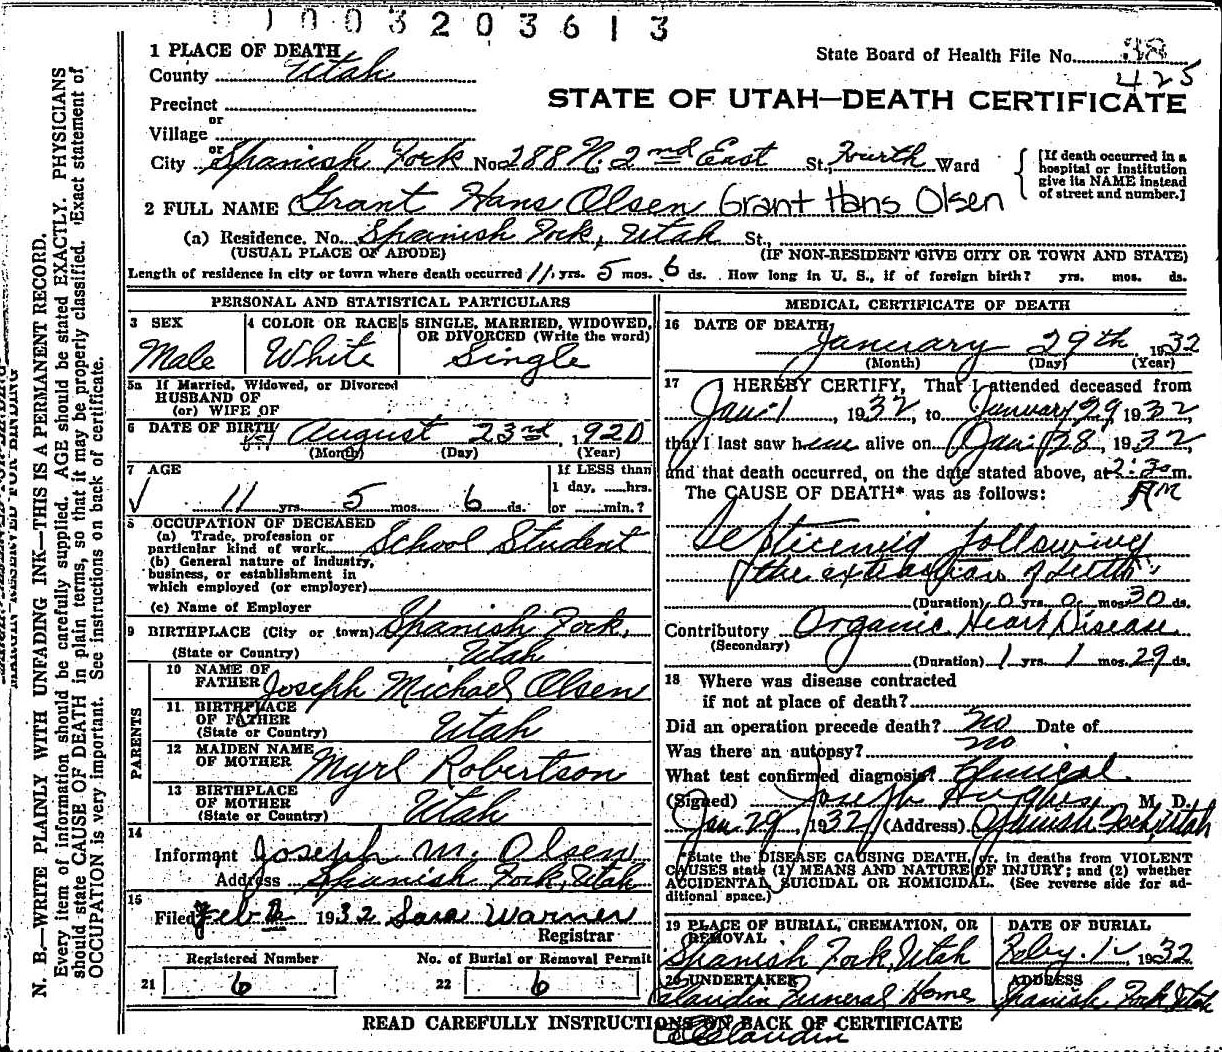 1003203613
1 PLACE OF DEATH
State Board of Health File No. 38
County Utah
425
Precinct
STATE OF UTAH—DEATH CERTIFICATE
or
Village
or
City Spanish Fork No. 288 N. 2nd East St., Fourth Ward
[If death occurred in a
hospital or institution
give its NAME instead
of street and number.]
2 FULL NAME Grant Hans Olsen Grant Hans Olsen
(a) Residence. No. Spanish Fork, Utah St.,
(USUAL PLACE OF ABODE) (IF NON-RESIDENT GIVE CITY OR TOWN AND STATE)
Length of residence in city or town where death occurred 11 yrs. 5 mos. 6 ds. How long in U. S., if of foreign birth? yrs. mos. ds.
PERSONAL AND STATISTICAL PARTICULARS
3 SEX
Male
4 COLOR OR RACE
White
5 SINGLE, MARRIED, WIDOWED,
OR DIVORCED (Write the word)
Single
5a If Married, Widowed, or Divorced
HUSBAND OF
(or) WIFE OF
6 DATE OF BIRTH August 23rd, 1920
(Month) (Day) (Year)
7 AGE
11 yrs. 5 mos. 6 ds.
If LESS than
1 day, hrs.
or min.?
8 OCCUPATION OF DECEASED
(a) Trade, profession or
particular kind of work School Student
(b) General nature of industry,
business, or establishment in
which employed (or employer)
(c) Name of Employer
9 BIRTHPLACE (City or town) Spanish Fork,
(State or Country) Utah
PARENTS
10 NAME OF
FATHER Joseph Michael Olsen
11 BIRTHPLACE
OF FATHER
(State or Country) Utah
12 MAIDEN NAME
OF MOTHER Myrl Robertson
13 BIRTHPLACE
OF MOTHER
(State or Country) Utah
14
Informant Joseph M. Olsen
Address Spanish Fork, Utah
15
Filed Feb 1932 Sara Warner
Registrar
Registered Number
21 6
No. of Burial or Removal Permit
22 6
MEDICAL CERTIFICATE OF DEATH
16 DATE OF DEATH
January 29th 1932
(Month) (Day) (Year)
17 I HEREBY CERTIFY, That I attended deceased from
Jan. 1, 1932, to January 29 1932
that I last saw him alive on Jan. 28, 1932,
and that death occurred, on the date stated above, at 2:30 m.
AM
The CAUSE OF DEATH* was as follows:
Septicemia following
the extraction of teeth
(Duration) 0 yrs. 0 mos. 30 ds.
Contributory Organic Heart Disease
(Secondary)
(Duration) 1 yrs. 1 mos. 29 ds.
18 Where was disease contracted
if not at place of death?
Did an operation precede death? no Date of
Was there an autopsy? no
What test confirmed diagnosis? Clinical
(Signed) Joseph Hughes, M. D.
Jan. 29, 1932 (Address) Spanish Fork, Utah
*State the DISEASE CAUSING DEATH, or, in deaths from VIOLENT
CAUSES state (1) MEANS AND NATURE OF INJURY; and (2) whether
ACCIDENTAL, SUICIDAL OR HOMICIDAL. (See reverse side for ad-
ditional space.)
19 PLACE OF BURIAL, CREMATION, OR
REMOVAL
Spanish Fork, Utah
DATE OF BURIAL
Feby. 1, 1932
20 UNDERTAKER
Claudin Funeral Home
ADDRESS
Spanish Fork, Utah
READ CAREFULLY INSTRUCTIONS ON BACK OF CERTIFICATE
Claudin
N. B.—WRITE PLAINLY WITH UNFADING INK—THIS IS A PERMANENT RECORD.
Every item of information should be carefully supplied. AGE should be stated EXACTLY. PHYSICIANS
should state CAUSE OF DEATH in plain terms, so that it may be properly classified. Exact statement of
OCCUPATION is very important. See instructions on back of certificate.
MARGIN RESERVED FOR BINDING